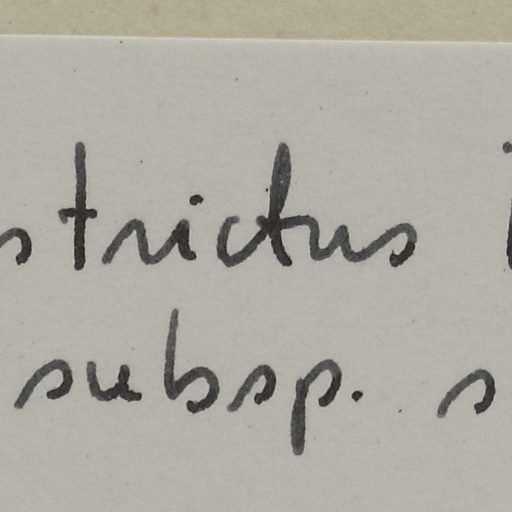 strictus
subsp. s